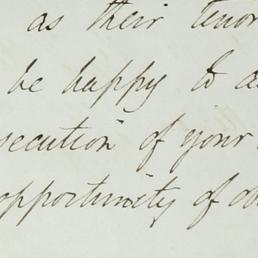 as their tenor
be happy to a
secution of your
opportunity of ob